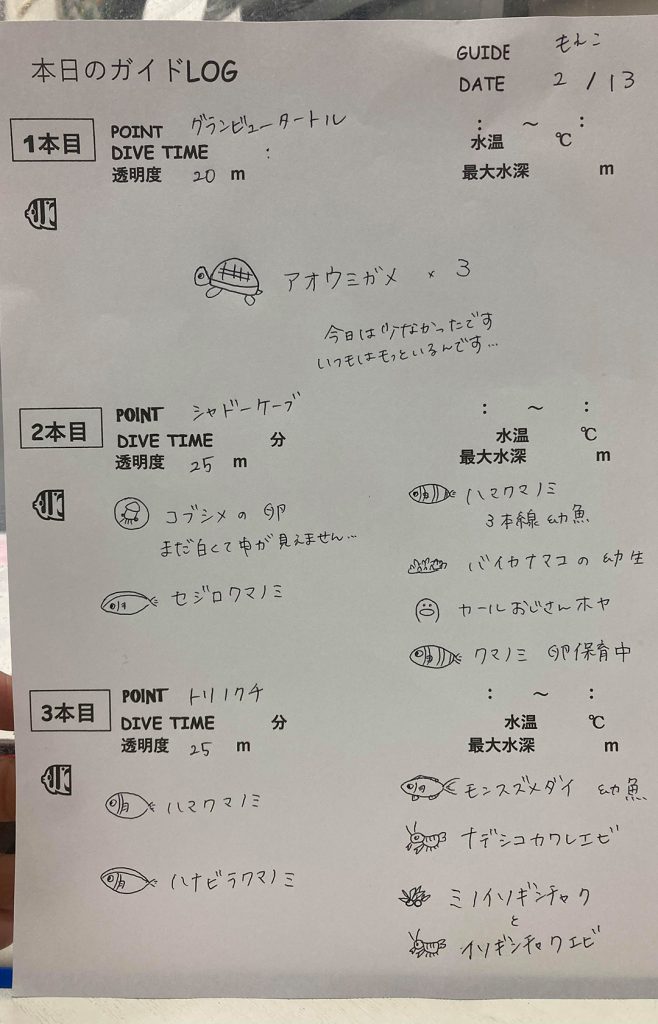 本日のガイドLOG
GUIDE もんこ
DATE 2/13
1本目
POINT グランビュータートル
DIVE TIME :
透明度 20 m
: ～ :
水温 ℃
最大水深 m
アオウミガメ × 3
今日は少なかったです
いつもはもっといるんです…
2本目
POINT シャドーケーブ
DIVE TIME 分
透明度 25 m
: ～ :
水温 ℃
最大水深 m
コブシメの卵
まだ白くて中が見えません…
セジロクマノミ
ハマクマノミ
3本線幼魚
バイカナマコの幼生
カールおじさんホヤ
クマノミ 卵保育中
3本目
POINT トリノクチ
DIVE TIME 分
透明度 25 m
: ～ :
水温 ℃
最大水深 m
ハマクマノミ
ハナビラクマノミ
モンスズメダイ 幼魚
ナデシコカクレエビ
ミノイソギンチャク
と
イソギンチャクエビ